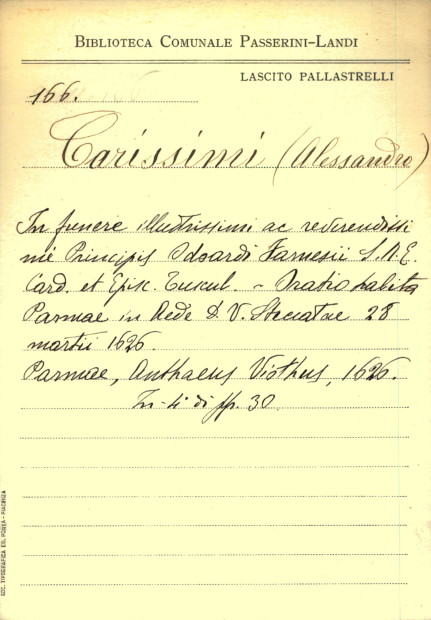 BIBLIOTECA COMUNALE PASSERINI-LANDI
LASCITO PALLASTRELLI
166.
Carissimi (Alessandro)
In funere illustrissimi ac reverendissi
mi Principis Odoardi Farnesii S. R. E.
Card. et Episc. Tuscul. - Oratio habita
Parmae in Aede D. V. Steccatae 28
martii 1626.
Parmae, Anthaeus Viothus, 1626.
In-4 di pp. 30
SOC. TIPOGRAFICA ED. PORTA - PIACENZA